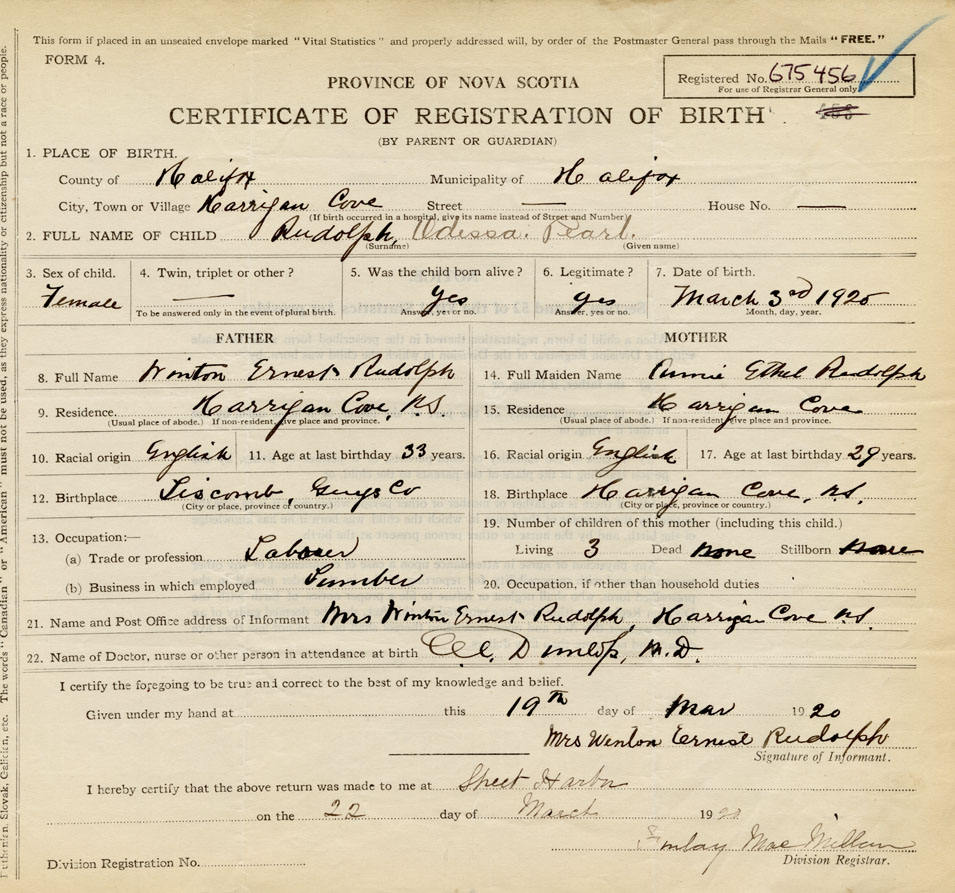 This form if placed in an unsealed envelope marked "Vital Statistics" and properly addressed will, by order of the Postmaster General pass through the Mails "FREE."
FORM 4.
Registered No. 675456
For use of Registrar General only
PROVINCE OF NOVA SCOTIA
CERTIFICATE OF REGISTRATION OF BIRTH
(BY PARENT OR GUARDIAN)
1. PLACE OF BIRTH.
County of Halifax Municipality of Halifax
City, Town or Village Harrigan Cove Street — House No. —
(If birth occurred in a hospital, give its name instead of Street and Number)
2. FULL NAME OF CHILD Rudolph, Odessa. Pearl.
(Surname) (Given name)
3. Sex of child. 4. Twin, triplet or other? 5. Was the child born alive? 6. Legitimate? 7. Date of birth.
Female — yes yes March 3rd 1920
To be answered only in the event of plural birth. Answer, yes or no. Answer, yes or no. Month, day, year.
FATHER MOTHER
8. Full Name Winton Ernest Rudolph 14. Full Maiden Name Annie Ethel Rudolph
9. Residence. Harrigan Cove, N.S. 15. Residence Harrigan Cove
(Usual place of abode.) If non-resident, give place and province. (Usual place of abode.) If non-resident, give place and province.
10. Racial origin English 11. Age at last birthday 33 years. 16. Racial origin English 17. Age at last birthday 29 years.
12. Birthplace Liscomb, Guys Co 18. Birthplace Harrigan Cove, N.S.
(City or place, province or country.) (City or place, province or country.)
19. Number of children of this mother (including this child.)
13. Occupation:—
(a) Trade or profession Labourer Living 3 Dead None Stillborn None
(b) Business in which employed Lumber 20. Occupation, if other than household duties
21. Name and Post Office address of Informant Mrs Winton Ernest Rudolph, Harrigan Cove N.S.
22. Name of Doctor, nurse or other person in attendance at birth Dunlop, M.D.
I certify the foregoing to be true and correct to the best of my knowledge and belief.
Given under my hand at this 19th day of Mar 1920
Mrs Winton Ernest Rudolph
Signature of Informant.
I hereby certify that the above return was made to me at Sheet Harbor
on the 22 day of March 1920
Finlay MacMillan
Division Registrar.
Division Registration No.
Slovak, Galician, etc. The words "Canadian" or "American" must not be used, as they express nationality or citizenship but not a race or people.